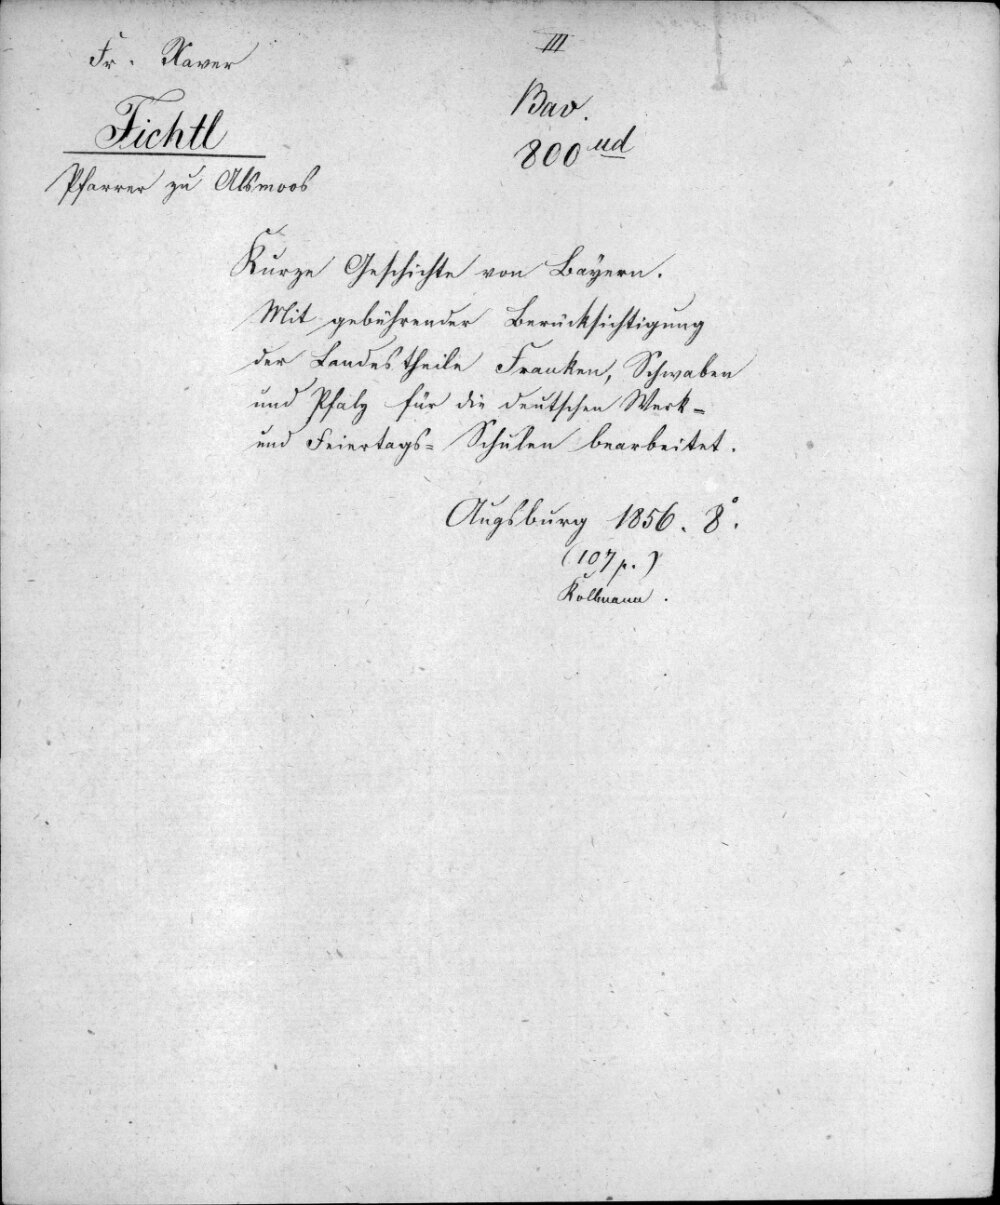 Fr. Xaver
III
Fichtl
Bav.
800 ud
Pfarrer zu Alsmoos
Kurze Geschichte von Bayern.
Mit gebührender Berücksichtigung
der Landestheile Franken, Schwaben
und Pfalz für die deutschen Werk-
und Feiertags- Schulen bearbeitet.
Augsburg 1856. 8°.
(107 p.)
Kollmann.